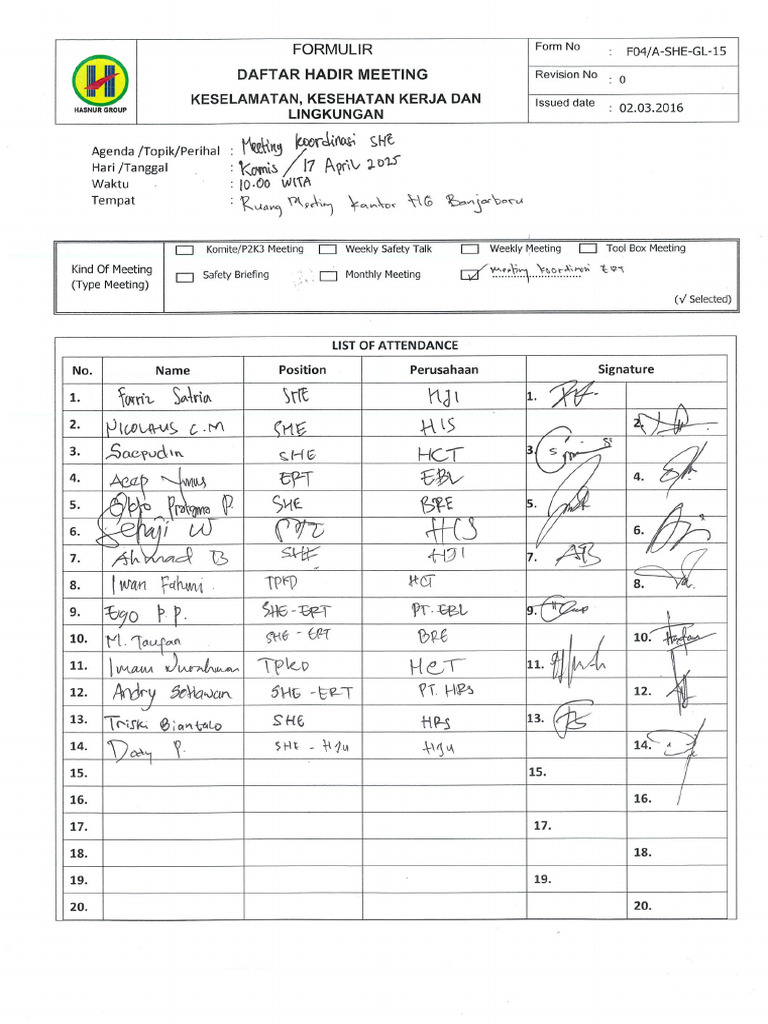 FORMULIR
DAFTAR HADIR MEETING
KESELAMATAN, KESEHATAN KERJA DAN
LINGKUNGAN
HASNUR GROUP
Form No : F04/A-SHE-GL-15
Revision No : 0
Issued date : 02.03.2016
Agenda /Topik/Perihal : Meeting Koordinasi SHE
Hari /Tanggal : Kamis / 17 April 2025
Waktu : 10.00 WITA
Tempat : Ruang Meeting Kantor HG Banjarbaru
Kind Of Meeting
(Type Meeting)
Komite/P2K3 Meeting Weekly Safety Talk Weekly Meeting Tool Box Meeting
Safety Briefing Monthly Meeting √ Meeting Koordinasi ERT
(√ Selected)
LIST OF ATTENDANCE
No. Name Position Perusahaan Signature
1. Farriz Satria SHE HJI 1.
2. NICOLAUS C.M SHE HIS 2.
3. Saepudin SHE HCT 3.
4. Acep Yunus ERT EBL 4.
5. Pratama P. SHE BRE 5.
6. W HCS 6.
7. Ahmad B SHE HJI 7.
8. Iwan Fahmi. TPKD HCT 8.
9. Ego P.P. SHE-ERT PT. EBL 9.
10. M. Taufan SHE-ERT BRE 10.
11. Imam TPKD HCT 11.
12. Andry Setiawan SHE-ERT PT. HRS 12.
13. Triski Biantalo SHE HRS 13.
14. P. SHE - HJU HJU 14.
15. 15.
16. 16.
17. 17.
18. 18.
19. 19.
20. 20.